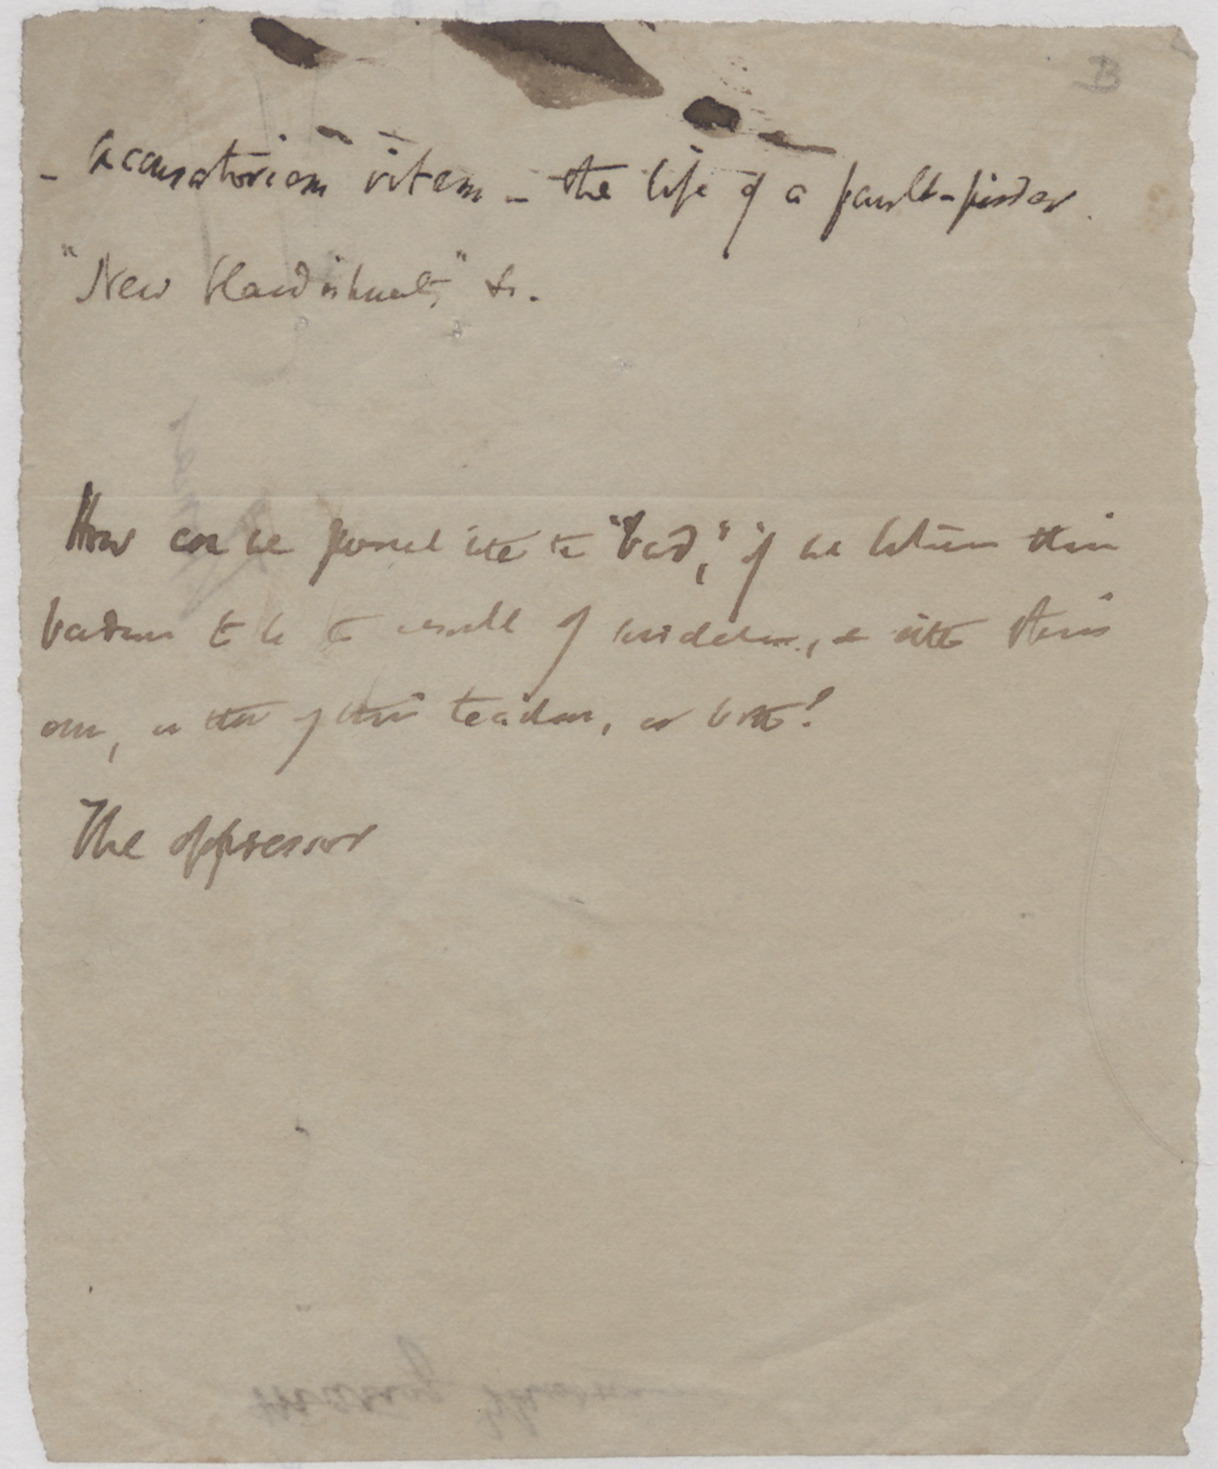 B
- Accusatoriam vitam - the life of a fault-finder.
"New &c.
How can we punish the "bad," if we believe their
badness to be the result of , & either their
own, or that of their teachers, or both?
The oppressor